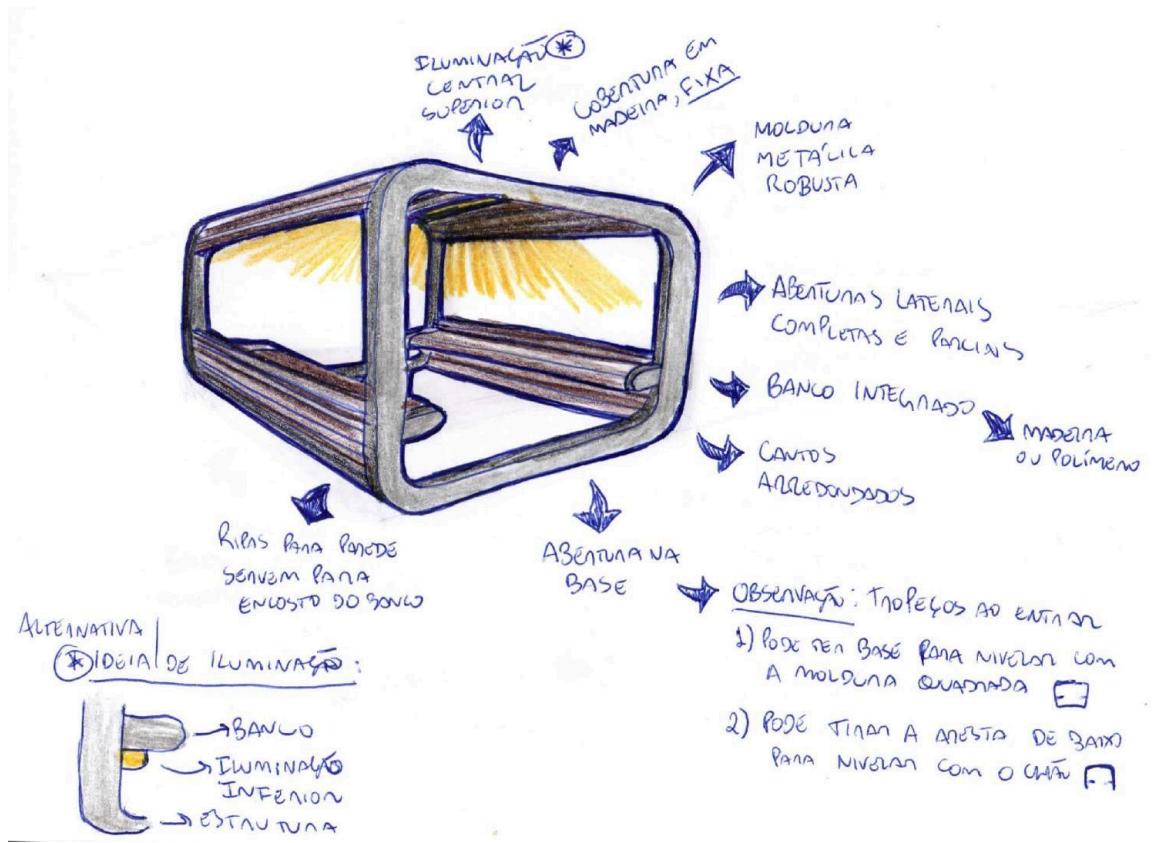 ILUMINAÇÃO *
CENTRAL
SUPERIOR
COBERTURA EM
MADEIRA, FIXA
MOLDURA
METÁLICA
ROBUSTA
ABERTURAS LATERAIS
COMPLETAS E PARCIAIS
BANCO INTEGRADO
MADEIRA
OU POLÍMERO
CANTOS
ARREDONDADOS
ABERTURA NA
BASE
RIPAS PARA PAREDE
SERVEM PARA
ENCOSTO DO BANCO
OBSERVAÇÃO: TROPEÇOS AO ENTRAR
1) PODE TER BASE PARA NIVELAR COM
A MOLDURA QUADRADA
2) PODE TIRAR A ARESTA DE BAIXO
PARA NIVELAR COM O CHÃO
ALTERNATIVA
* IDEIA DE ILUMINAÇÃO:
BANCO
ILUMINAÇÃO
INFERIOR
ESTRUTURA